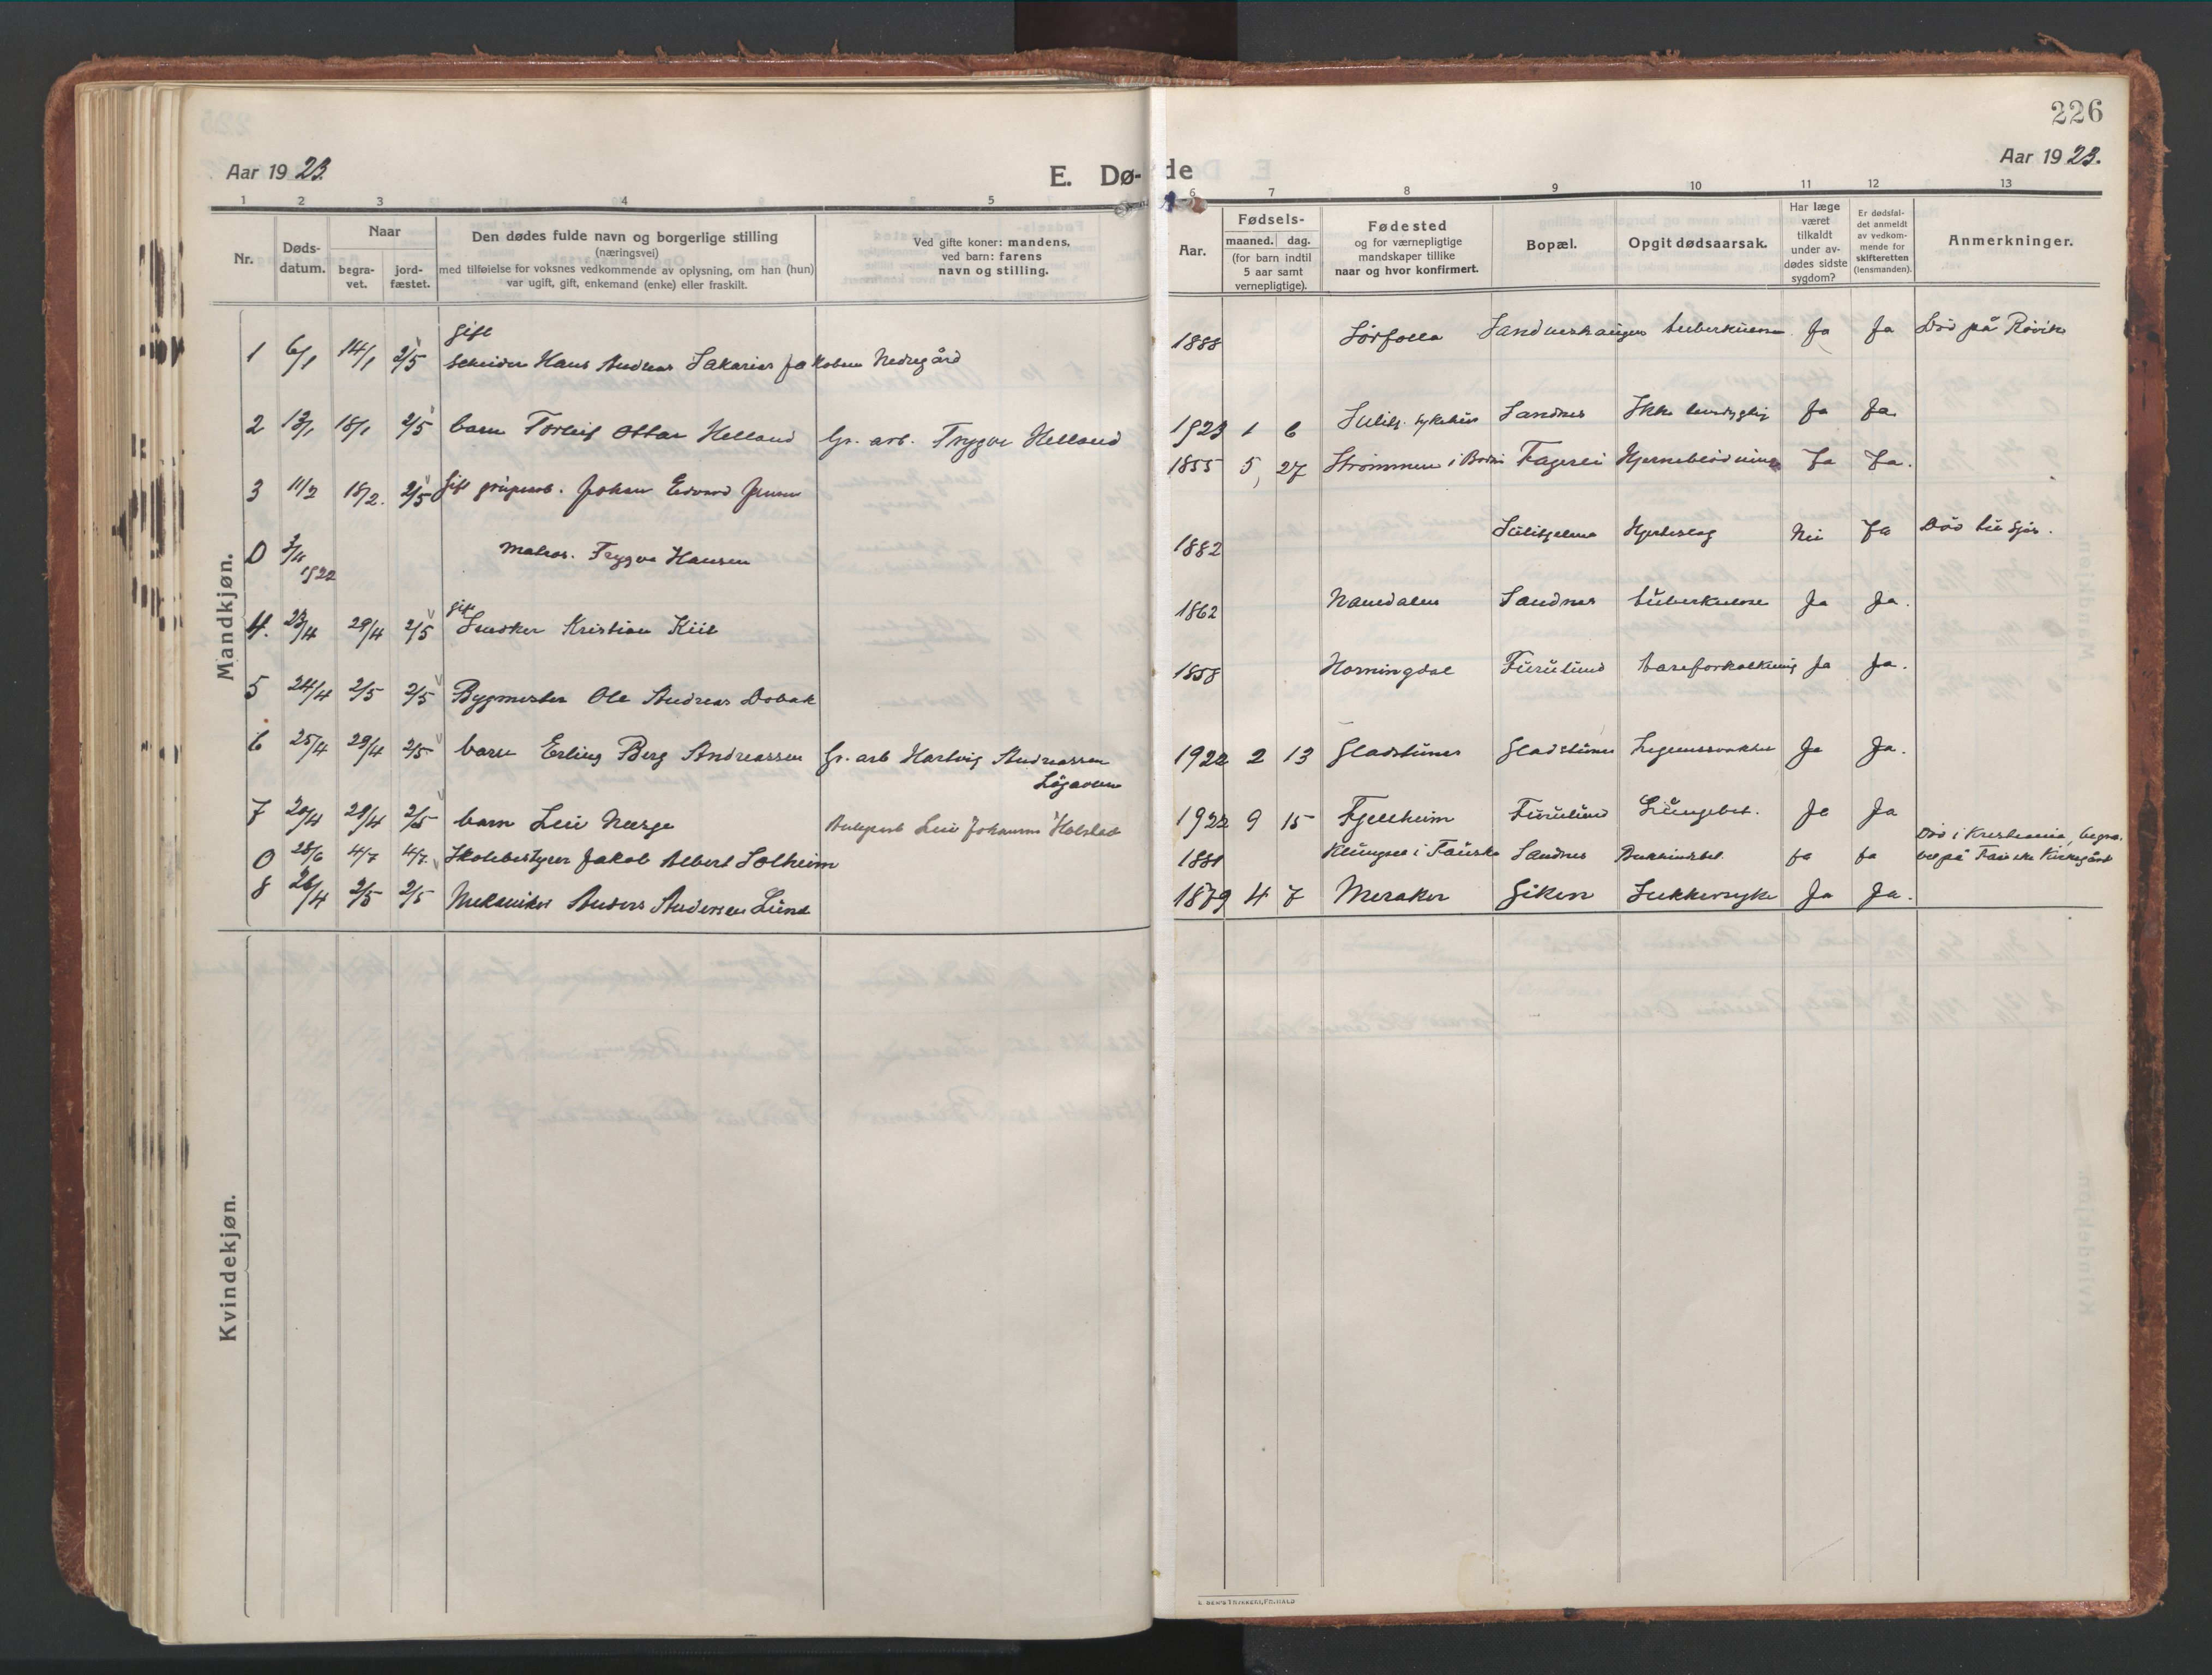 226
Aar 1923.
E. Dø-
de
Aar 1923.
1 2 3 4 5 6 7 8 9 10 11 12 13
Nr.
Døds-
datum.
Naar
begra-
vet.
jord-
fæstet.
Den dødes fulde navn og borgerlige stilling
(næringsvei)
med tilføielse for voksnes vedkommende av oplysning, om han (hun)
var ugift, gift, enkemand (enke) eller fraskilt.
Ved gifte koner: mandens,
ved barn: farens
navn og stilling.
Aar.
Fødsels-
maaned. dag.
(for barn indtil
5 aar samt
vernepligtige).
Fødested
og for værnepligtige
mandskaper tillike
naar og hvor konfirmert.
Bopæl.
Opgit dødsaarsak.
Har læge
været
tilkaldt
under av-
dødes sidste
sygdom?
Er dødsfal-
det anmeldt
av vedkom-
mende for
skifteretten
(lensmanden).
Anmerkninger.
Mandkjøn.
gift
1 6/1 14/1 2/5 Hans Andreas Sakarias Jakobsen Nedregård 1888 Sörfolla tuberkulose Ja Ja Död på Rövik
2 13/1 18/1 2/5 barn Torleif Ottar Helland Gr. arb. Trygve Helland 1923 1 6 Sulitj. sykehus Sandnes Ikke levedygtig Ja Ja
3 11/2 18/2. 2/5 Gift grubearb. Johan Edvard Jensen 1855 5 27 Strömmen i Bodin Fagerli Hjerneblödning Ja Ja.
0 3/11 1922 matros. Trygve Hansen 1882 Sulitjelma Hjerteslag Nei Ja Död til sjös.
gift
4. 23/4 29/4 2/5 Kristian Kiil 1862 Namdalen Sandnes tuberkulose Ja Ja.
5 24/4 2/5 2/5 Bygmester Ole Andreas Dobak 1858 Horningdal Furulund Ja Ja.
6 25/4 29/4 2/5 barn Erling Berg Andreassen Gr. arb Hartvig Andreassen 1922 2 13 Gladstuner Gladstuner Ja Ja.
Lögavlen
7 20/4 28/4 2/5 barn Leif Norge Leif Johannes Holstad 1922 9 15 Fjellheim Furulund Lungebet. Ja Ja
0 28/6 4/7 4/7. Skolebestyrer Jakob Albert Solheim 1881 Klungset i Fauske Sandnes Bukhindebet. Ja Ja Död i Kristiania, begra-
vet på Fauske Kirkegård
8 26/4 2/5 2/5 Mekaniker Anders Andersen Lund 1879 4 7 Meraker Giken Sukkersyke Ja Ja.
Kvindekjøn.